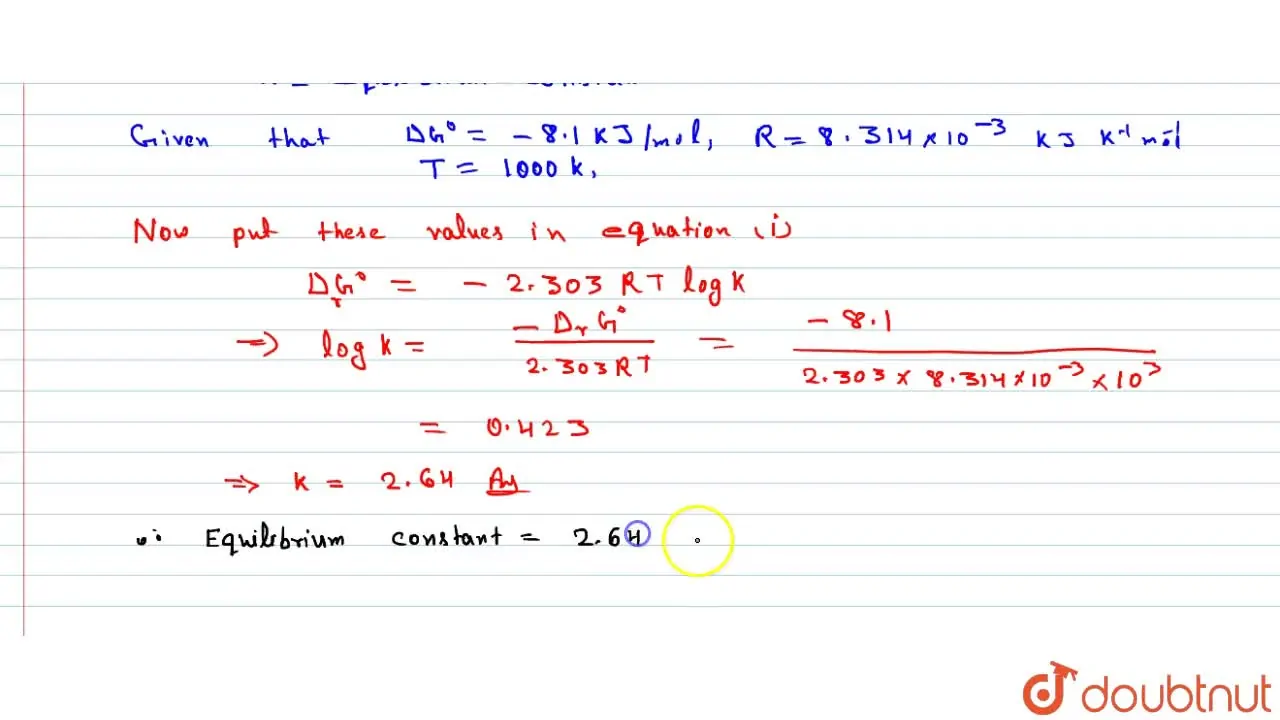 Given that ΔG° = - 8.1 KJ/mol, R = 8.314 × 10⁻³ KJ K⁻¹ mol⁻¹
T = 1000 K,
Now put these values in equation (i)
ΔᵣG° = - 2.303 RT log K
⇒ log K = - ΔᵣG° / 2.303 RT = - 8.1 / 2.303 × 8.314 × 10⁻³ × 10³
= 0.423
⇒ K = 2.64 Ans
∴ Equilibrium constant = 2.64
doubtnut